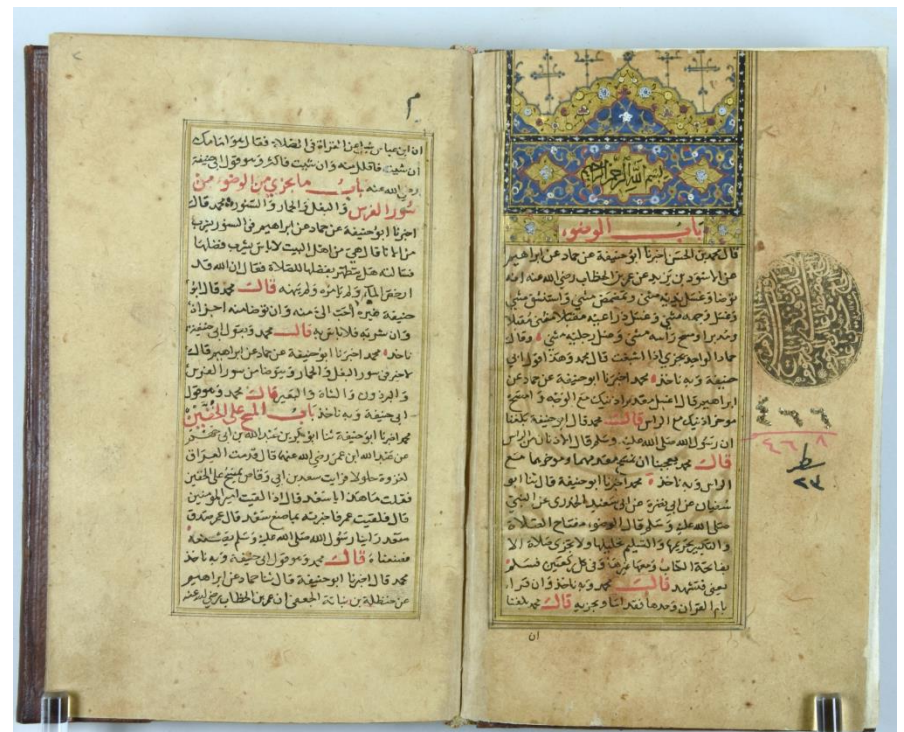 بسم الله الرحمن الرحيم
باب الوضوء
قال محمد بن الحسن اخبرنا ابو حنيفة عن حماد عن ابراهيم
عن الاسود بن يزيد عن عمر بن الخطاب رضي الله عنه انه
توضأ وغسل يديه مثنى وتمضمض مثنى واستنشق مثنى
وغسل وجهه مثنى وغسل ذراعيه مقبلا مثنى مدبرا
ومسح راسه مثنى وغسل رجليه مثنى وقال
حماد الواحد يجزي اذا اسبغت قال محمد وهذا قول ابي
حنيفة وبه ناخذ محمد اخبرنا ابو حنيفة عن حماد عن
ابراهيم قال اغسل مقدم اذنيك مع الوجه وامسح
موخر اذنيك مع الراس قال محمد قال ابو حنيفة بلغنا
ان رسول الله صلى الله عليه وسلم قال الاذنان من الراس
قال محمد يعجبنا ان نمسح مقدمهما وموخرهما مع
الراس وبه ناخذ محمد اخبرنا ابو حنيفة قال ثنا ابو
سفيان عن ابي نضرة عن ابي سعيد الخدري عن النبي
صلى الله عليه وسلم قال الوضوء مفتاح الصلاة
والتكبير تحريمها والتسليم تحليلها ولا تجزي صلاة الا
بفاتحة الكتاب ومعها غيرها وفي كل ركعتين فسلم
يعني فتشهد قال محمد وبه ناخذ وان قرا
بام القران وحدها فقد اسا ويجزيه قال محمد بلغنا
ان
سطر
٢٣
م
ان ابن عباس سئل عن القراة في الصلاة فقال هو امامك
ان شيت فاقلل منه وان شيت فاكثر وهو قول ابي حنيفة
رضي الله عنه باب ما يجزي من الوضوء من
سور الفرس والبغل والحمار والسنور محمد قال
اخبرنا ابو حنيفة عن حماد عن ابراهيم في السنور يشرب
من الانا قال هي من اهل البيت لا باس بشرب فضلها
فسالته هل يتطهر بفضلها للصلاة فقال ان الله قد
ارخص الماء ولم يامره ولم ينهه قال محمد قال ابو
حنيفة غيره احب الي منه وان توضا منه اجزاه
وان شربه فلا باس به قال محمد وبقول ابي حنيفة
ناخذ محمد اخبرنا ابو حنيفة عن حماد عن ابراهيم قال
لا خير في سور البغل والحمار ويتوضا من سور الفرس
والبرذون والشاة والبعير قال محمد وهو قول
ابي حنيفة وبه ناخذ باب المسح على الخفين
محمد اخبرنا ابو حنيفة ثنا ابو بكر بن عبد الله بن ابي جهم
عن عبد الله ابن عمر رضي الله عنه قال قدمت العراق
لغزوة جلولا فرايت سعد بن ابي وقاص يمسح على الخفين
فقلت ما هذا يا سعد قال اذا لقيت امير المؤمنين
قال فلقيت عمر فاخبرته بما صنع سعد قال عمر صدق
سعد راينا رسول الله صلى الله عليه وسلم يصنعه
فصنعناه قال محمد وهو قول ابي حنيفة وبه ناخذ
محمد قال اخبرنا ابو حنيفة قال ثنا حماد عن ابراهيم
عن حنظلة بن نباتة الجعفي ان عمر بن الخطاب رضي الله عنه